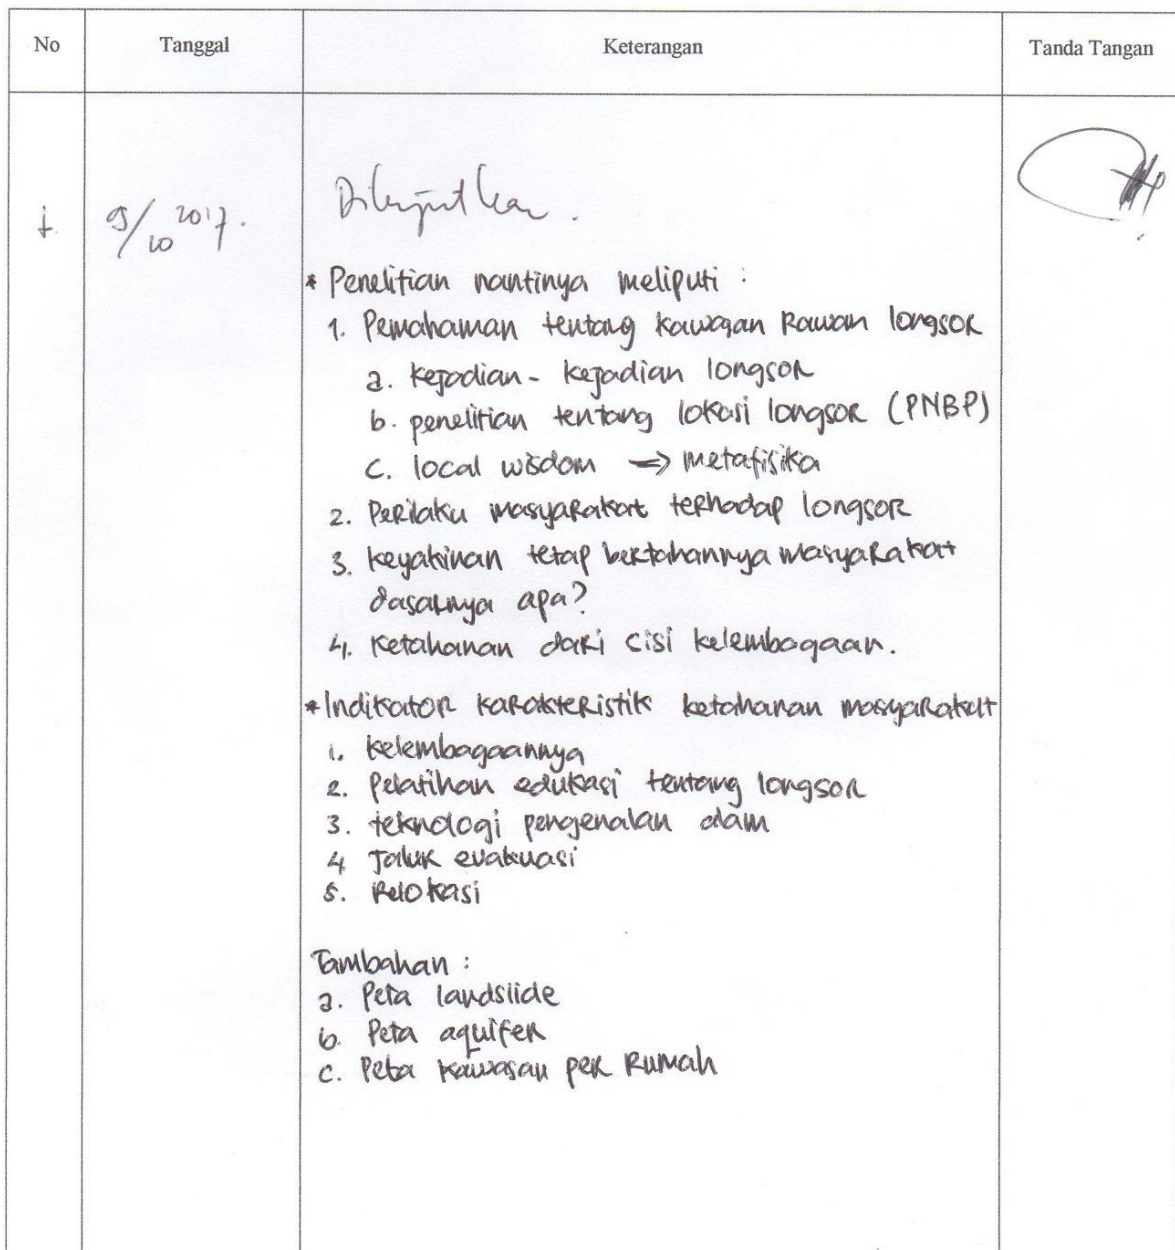 No Tanggal Keterangan Tanda Tangan
1. 9/10 2017. Dilanjutkan.
* Penelitian nantinya meliputi :
1. Pemahaman tentang kawasan Rawan longsor
a. kejadian - kejadian longsor
b. penelitian tentang lokasi longsor (PNBP)
c. local wisdom => metafisika
2. Perilaku masyarakat terhadap longsor
3. keyakinan tetap bertahannya masyarakat
dasarnya apa?
4. Ketahanan dari cisi kelembagaan.
* Indikator karakteristik ketahanan masyarakat
1. kelembagaannya
2. Pelatihan edukasi tentang longsor
3. teknologi pengenalan alam
4 Jalur evakuasi
5. Relokasi
Tambahan :
a. Peta landslide
b. Peta aquifer
c. Peta kawasan per Rumah